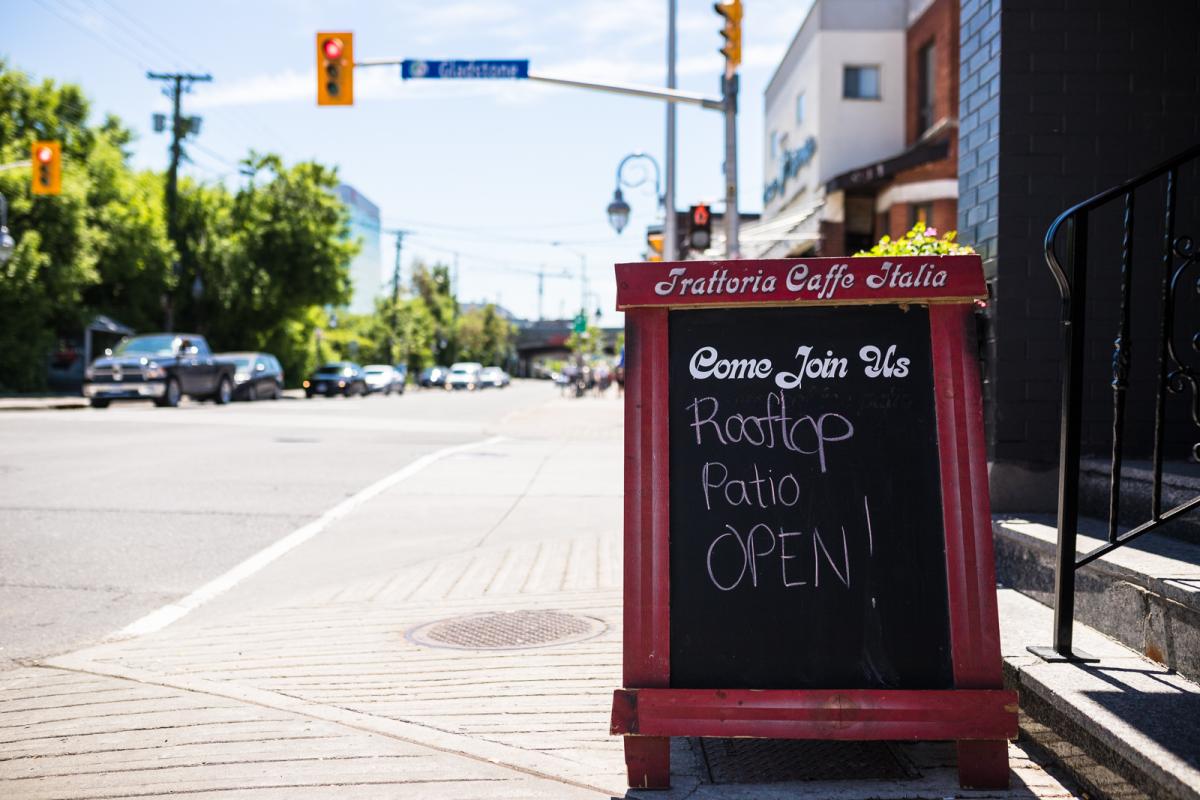 Gladstone
Trattoria Caffe Italia
Come Join Us
Rooftop
Patio
OPEN!